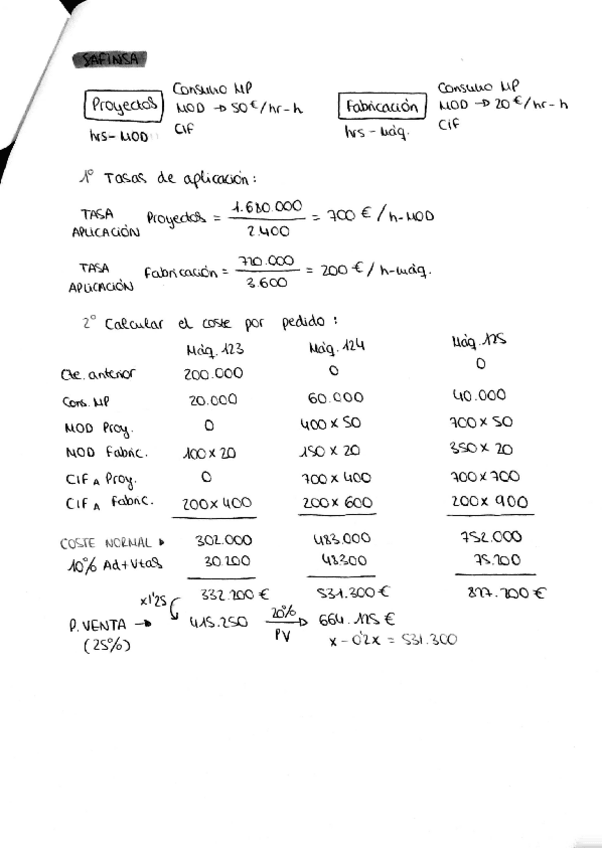 SAFINSA
Proyectos
Consumo MP
MOD → 50 €/hr-h
CIF
hrs-MOD
Fabricación
Consumo MP
MOD → 20 €/hr-h
CIF
hrs-Máq.
1º Tasas de aplicación:
TASA APLICACIÓN Proyectos = 1.680.000 / 2.400 = 700 €/h-MOD
TASA APLICACIÓN Fabricación = 720.000 / 3.600 = 200 €/h-máq.
2º Calcular el coste por pedido:
Máq. 123 Máq. 124 Máq. 125
Cte. anterior 200.000 0 0
Cons. MP 20.000 60.000 40.000
MOD Proy. 0 400 x 50 700 x 50
MOD Fabric. 100 x 20 150 x 20 350 x 20
CIF A Proy. 0 700 x 400 700 x 700
CIF A Fabric. 200 x 400 200 x 600 200 x 900
COSTE NORMAL 302.000 483.000 752.000
10% Ad+Vtas 30.200 48300 75.200
332.200 € 531.300 € 827.200 €
x1'25
P. VENTA → 415.250 20% PV → 664.125 €
(25%) x - 0'2x = 531.300